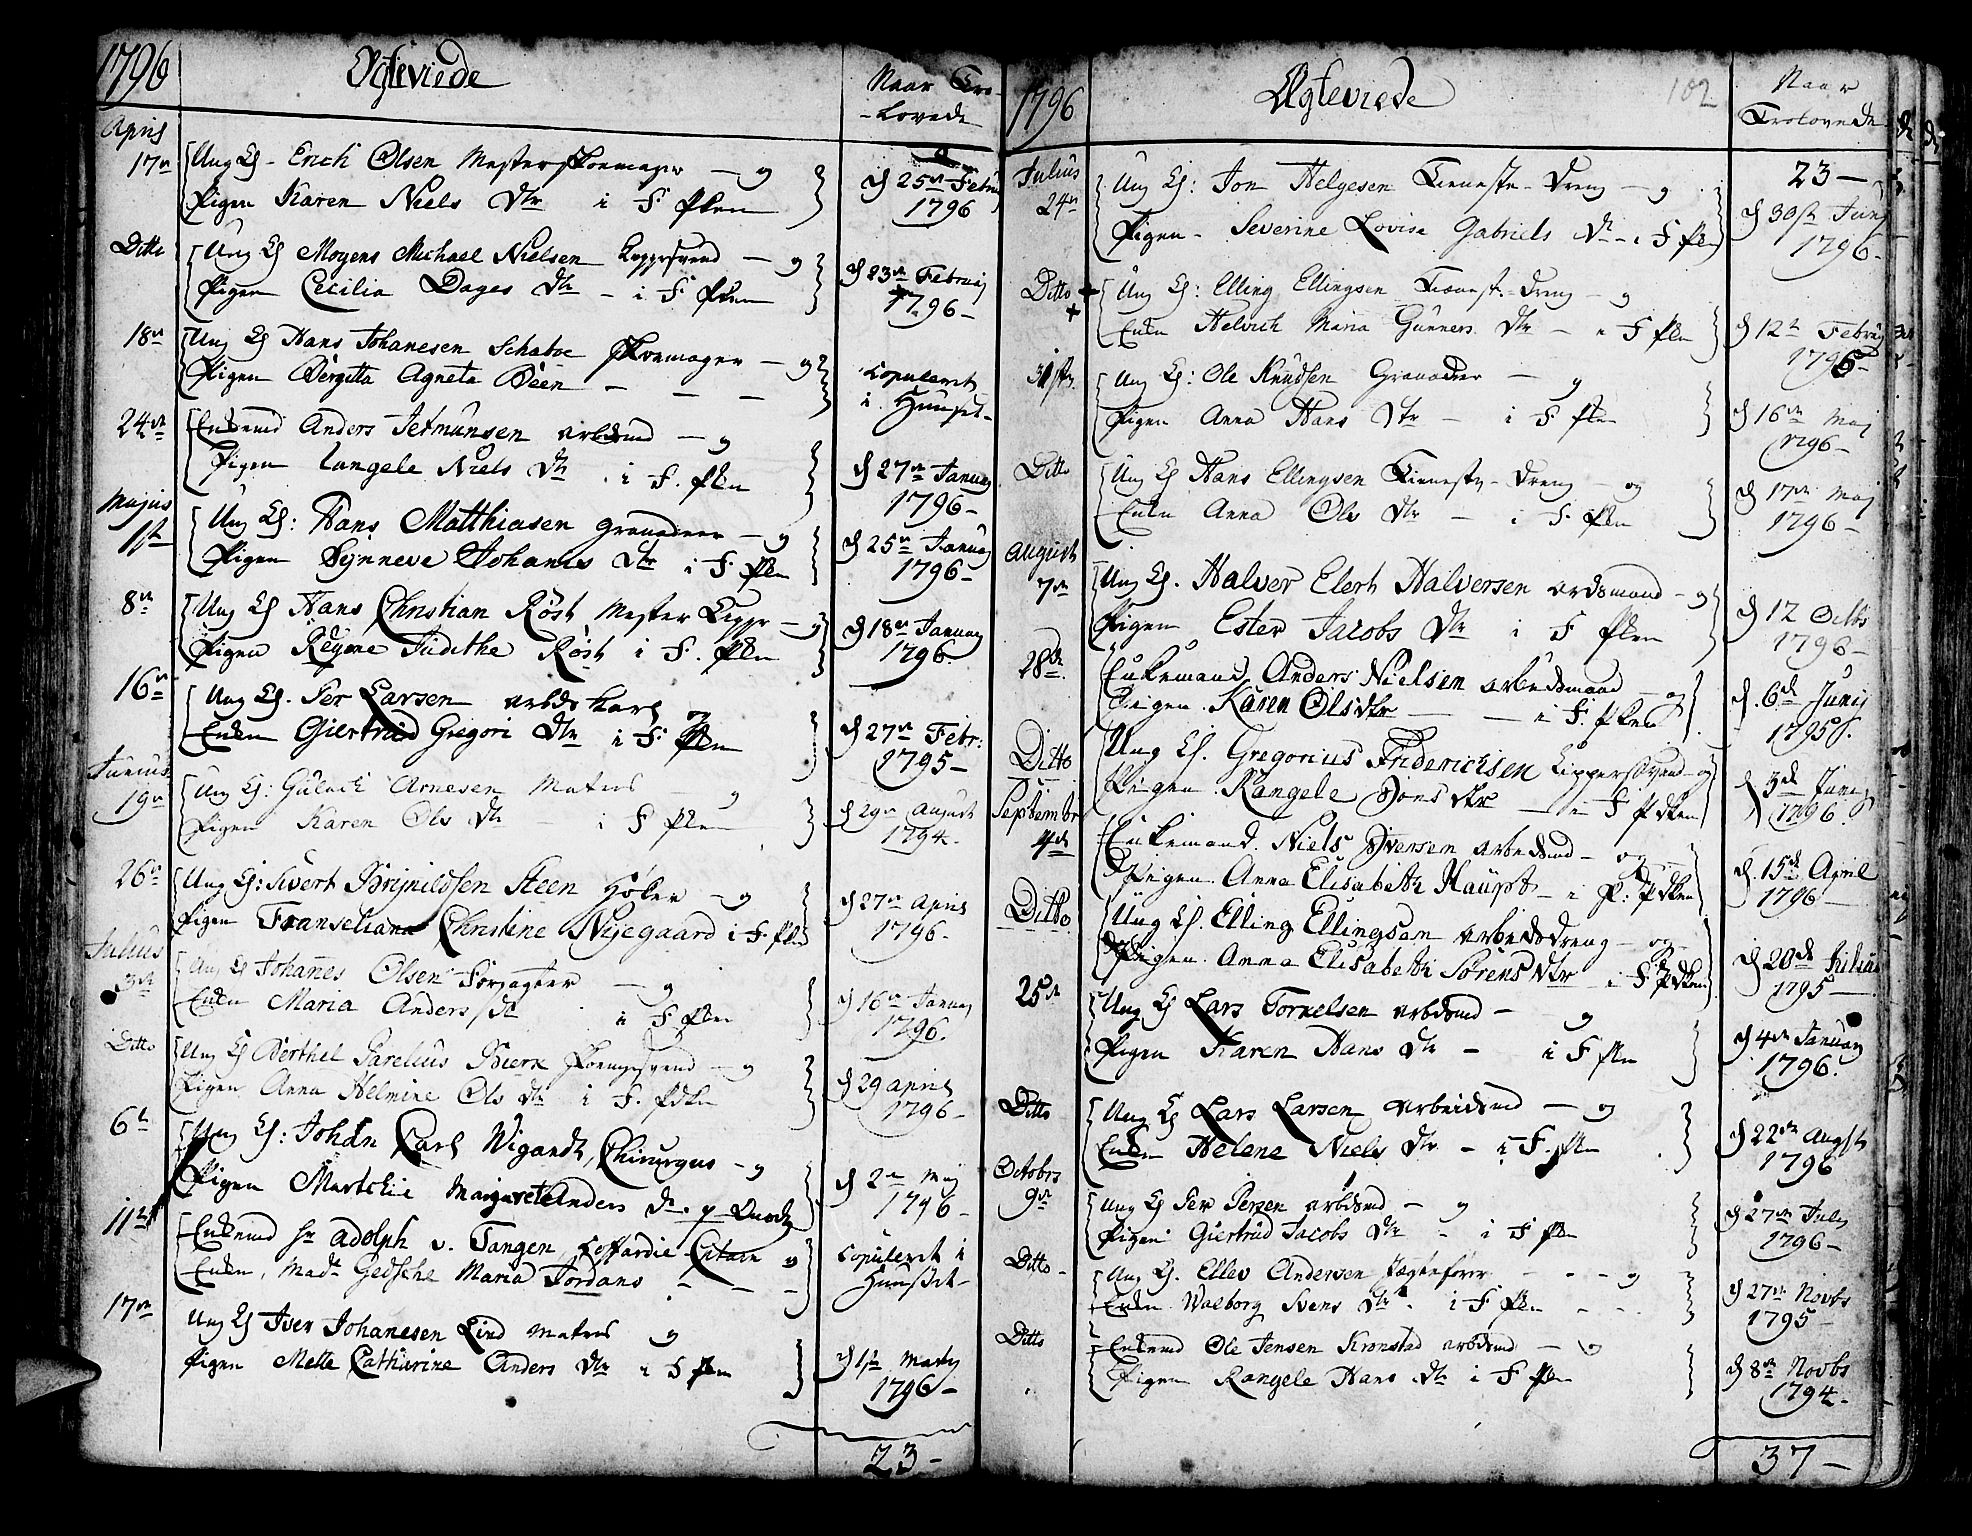 1796 Egteviede Naar Tro-
-lovede
April
17de Ung Ks. Erich Olsen Mester skoemager - og
Pigen Karen Niels Dtr i F. Pken d 25de Febru 1796
Ditto Ung Ks Mogens Michael Nielsen - og
Pigen Cecilia Dages Dtr - i F. Pken d 23de Februarj 1796 -
18de Ung Ks Hans Johanesen Schaboe skoemager - og
Pigen Bergitta Agneta Been - - - Copuleret i Huuset -
24de Enkemd Anders Jetmunsen arbdsmd - og
Pigen Langele Niels Dtr i F. Pken d 27de Januarj 1796 -
Majus
1ste Ung Ks: Hans Matthiasen Granadeer - og
Pigen Synneve Johanes Dtr i F. Pken d 25de Januarj 1796 -
8de Ung Ks Hans Christian Röst Mester - og
Pigen Regine Judithe Röst i F. Pken d 18de Januarj 1796.
16de Ung Ks. Per Larsen arbdskarl og
Enken Giertrud Gregori Dtr i F. Pken d 27de Febr: 1795 -
Junius
19de Ung Ks: Gulach Arnesen Matros - og
Pigen Karen Ols Dtr - i F Pken d 29de August 1794.
26de Ung Ks: Sivert Brynildsen Steen Höker - og
Pigen Franseliana Christine Nyegaard i F. Pken d 27de April 1796.
Julius
3de Ung Ks Johannes Olsen - og
Enken Maria Anders Dtr i F Pken d 16de Januarj 1796.
Ditto Ung Ks Berthel Parelius Bierk - og
Pigen Anna Helmine Ols Dtr i F. Pdken d 29 April 1796 -
6te Ung Ks: Johan Carl Wigandt, Chirurgus - og
Pigen Martichie Margrete Anders Dr. d 2den Maj 1796 -
11te Enkemd Sr Adolph v. Tangen, Coffardie Citain og
Enken, Madm Gedsche Maria Jordans - - - Copuleret i Huuset -
17de Ung Ks Iver Johanesen Lind Matros og
Pigen Mette Catharine Anders Dtr i F Pken d 1ste Martj 1796 -
23 -
1796 Egteviede 102 Naar
Trolovede
23 -
Julius
24de Ung Ks: Jon Helgesen Tieneste Dreng - og
Pigen - Severine Lovise Gabriels Dtr - i F Pken d 30ste Junj 1796 -
Ditto + Ung Ks: Elling Ellingsen Tienest. Dreng - og
Enken Helvich Maria Gunners Dtr - i F Pken d 12te Februarj 1796 -
31ste Ung Ks: Ole Knudsen Granadeer - og
Pigen Anna Hans Dtr - i F Pken d 16de Maj 1796 -
Ditto Ung Ks Hans Ellingsen Tieneste - Dreng - og
Enken Anna Ols Dtr - i F. Pken d 17de Maj 1796 -
August
7de Ung Ks. Halver Elert Halversen ardsmand - og
Pigen Ester Jacobs Dtr i F Pken d 12 Octbr 1796 -
28de Enkemand Anders Nielsen arbedsmand - og
Pigen Karen Olsdtr - - i F. Pken d. 6de Junij 1795.
Ditto Ung Ks. Gregorius Friderichsen - og
Pigen Rangele Jonsdtr - i F Pdken d 3de Junij 1796.
September
4de Enkemand. Niels Iversen arbedsmd - og -
Pigen. Anna Elisabeth Haupt - i F: Pdken d. 15de April 1796 -
Ditto Ung Ks. Elling Ellingsen arbeidsdreng - og -
Pigen. Anna Elisabeth Sörens dtr - i F Pdken d 20de Julius 1795 -
25de Ung Ks Lars Tornelsen arbdsmd - og
Pigen Karen Hans Dtr - i F Pken d 4de Januarj 1796.
Ditto Ung Ks Lars Larsen Arbeidsmd - og
Enken Helena Niels Dtr - i F. Pken d 22de Augst 1796
Octobr
9de Ung Ks Per Persen arbdsmd - og
Pigen Giertrud Jacobs Dtr - i F Pken d 27de Julj 1796 -
Ditto - Ung Ks. Ellev Andersen Jægtefører - - - og
Enken Walborg Svens Dtr. i F Pken - - d 27de Novbr 1795 -
Ditto Enkemd Ole Jensen Kronstad arbdsmd - og
Pigen Rangele Hans Dtr i F Pken d 8de Novbr 1794.
37 -